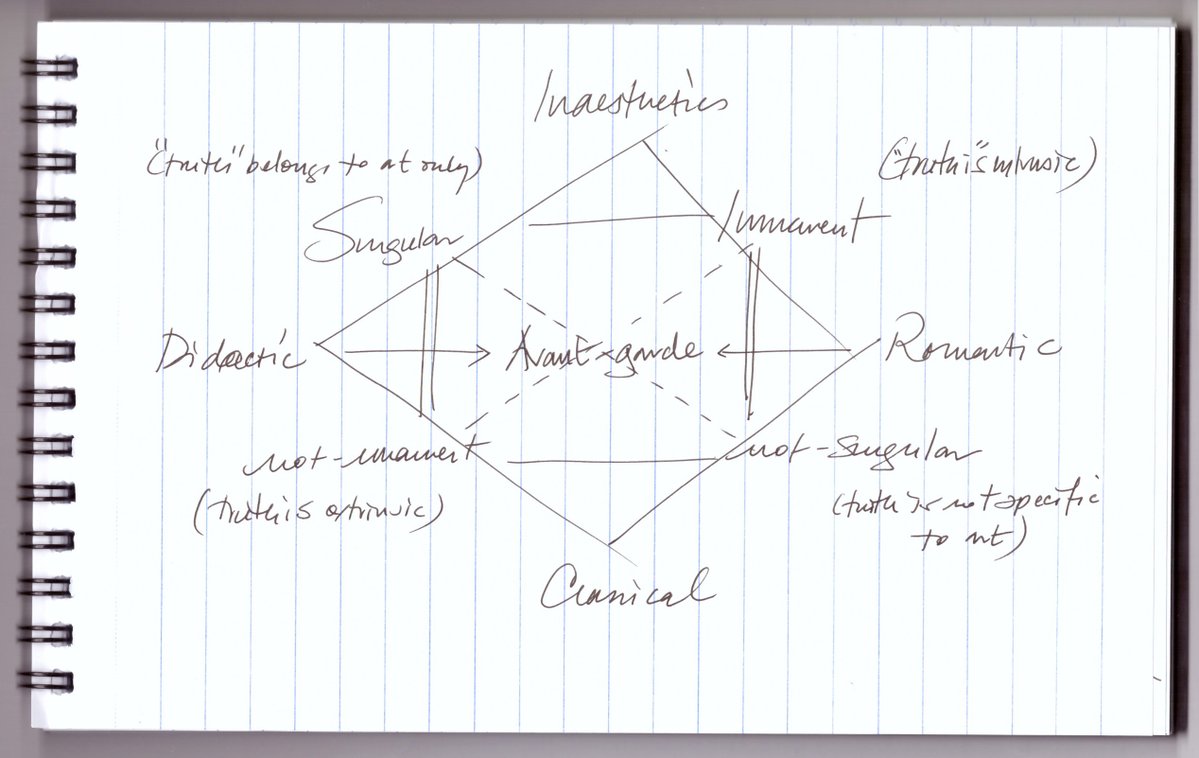 Inaesthetics
("truth" belongs to art only)
("truth is" intrinsic)
Singular
Immanent
Didactic
Avant-garde
Romantic
not-immanent
not-singular
(truth is extrinsic)
(truth is not specific
to art)
Classical